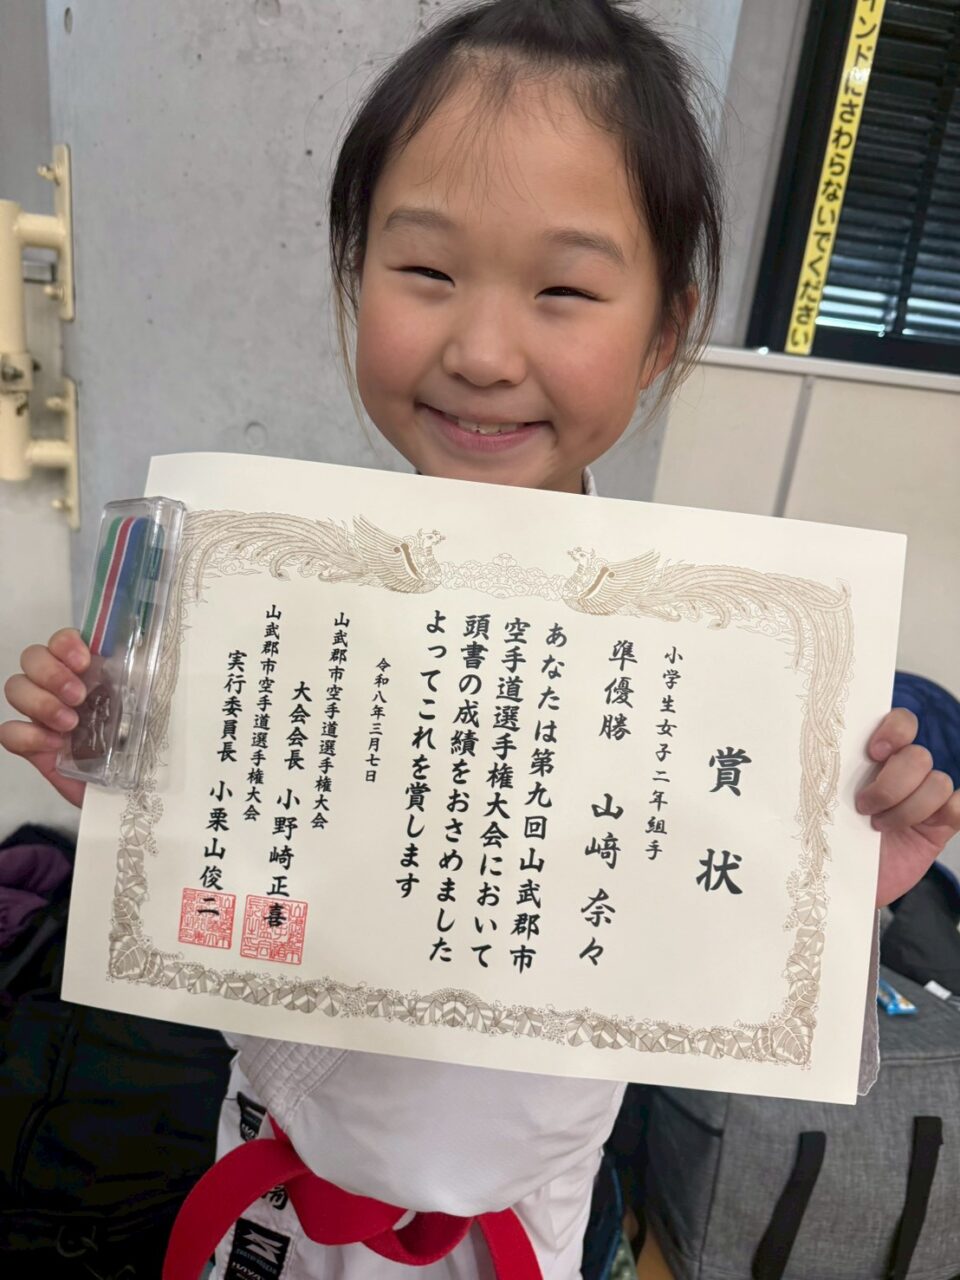 賞状
小学生女子二年組手
準優勝 山﨑 奈々
あなたは第九回山武郡市
空手道選手権大会において
頭書の成績をおさめました
よってこれを賞します
令和八年三月七日
山武郡市空手道選手権大会
大会会長 小野崎正喜
山武郡市空手道選手権大会
実行委員長 小栗山俊二
インドにさわらないでください